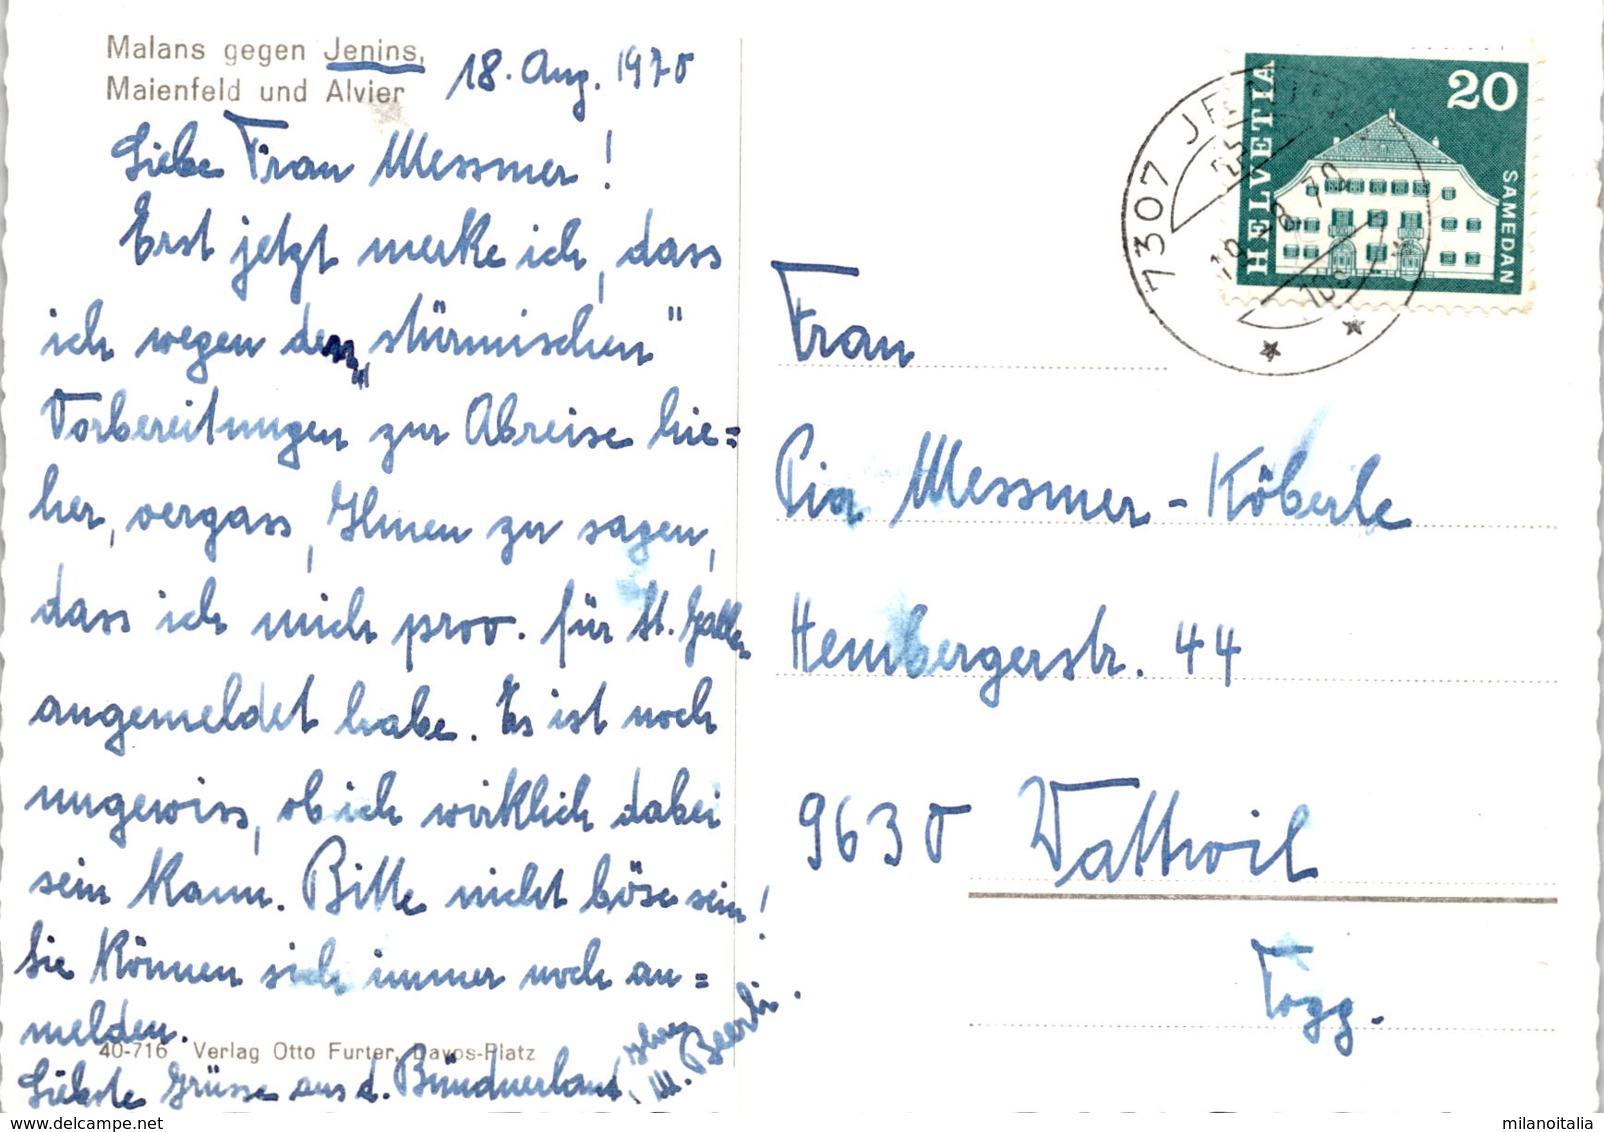 Malans gegen Jenins,
Maienfeld und Alvier
18. Aug. 1970
Liebe Frau Messmer!
Erst jetzt merke ich, dass
ich wegen den „stürmischen"
Vorbereitungen zur Abreise hie=
her, vergass, Ihnen zu sagen,
dass ich mich prov. für St. Gallen
angemeldet habe. Es ist noch
ungewiss, ob ich wirklich dabei
sein kann. Bitte nicht böse sein!
Sie können sich immer noch an=
melden.
40-716 Verlag Otto Furter, Davos-Platz
Liebste Grüsse aus d. Bündnerland,
M. Beerli.
HELVETIA
20
SAMEDAN
7307 JENINS
18.-8.70
Frau
Pia Messmer-Köberle
Hembergerstr. 44
9630 Wattwil
Togg.
milanoitalia